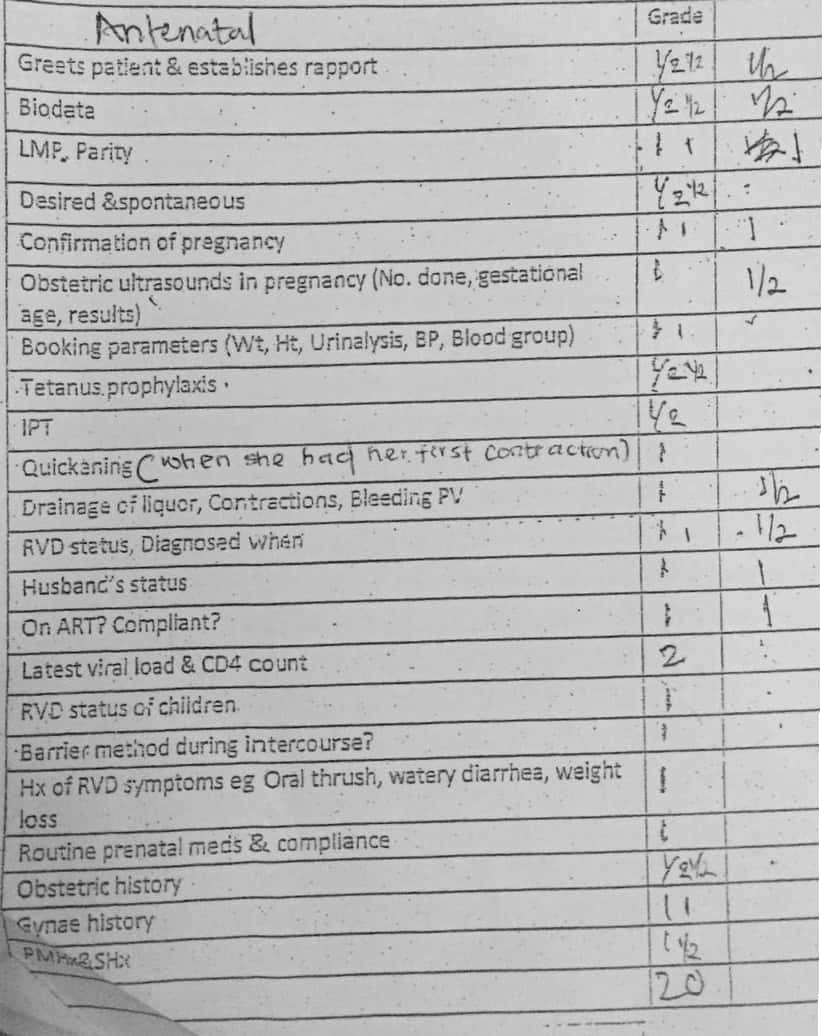 Antenatal Grade
Greets patient & establishes rapport 1/2 1/2 1/2
Biodata 1/2 1/2 1/2
LMP, Parity 1 1 1
Desired &spontaneous 1/2 1/2
Confirmation of pregnancy 1 1 1
Obstetric ultrasounds in pregnancy (No. done, gestational 1 1/2
age, results)
Booking parameters (Wt, Ht, Urinalysis, BP, Blood group) 1 1
Tetanus prophylaxis 1/2 1/2
IPT 1/2
Quickening (when she had her first contraction) 1
Drainage of liquor, Contractions, Bleeding PV 1 1/2
RVD status, Diagnosed when 1 1 1/2
Husband's status 1 1
On ART? Compliant? 1 1
Latest viral load & CD4 count 2
RVD status of children 1
Barrier method during intercourse? 1
Hx of RVD symptoms eg Oral thrush, watery diarrhea, weight 1
loss
Routine prenatal meds & compliance 1
Obstetric history 1/2 1/2
Gynae history 1 1
PMHx& SHx 1 1/2
20